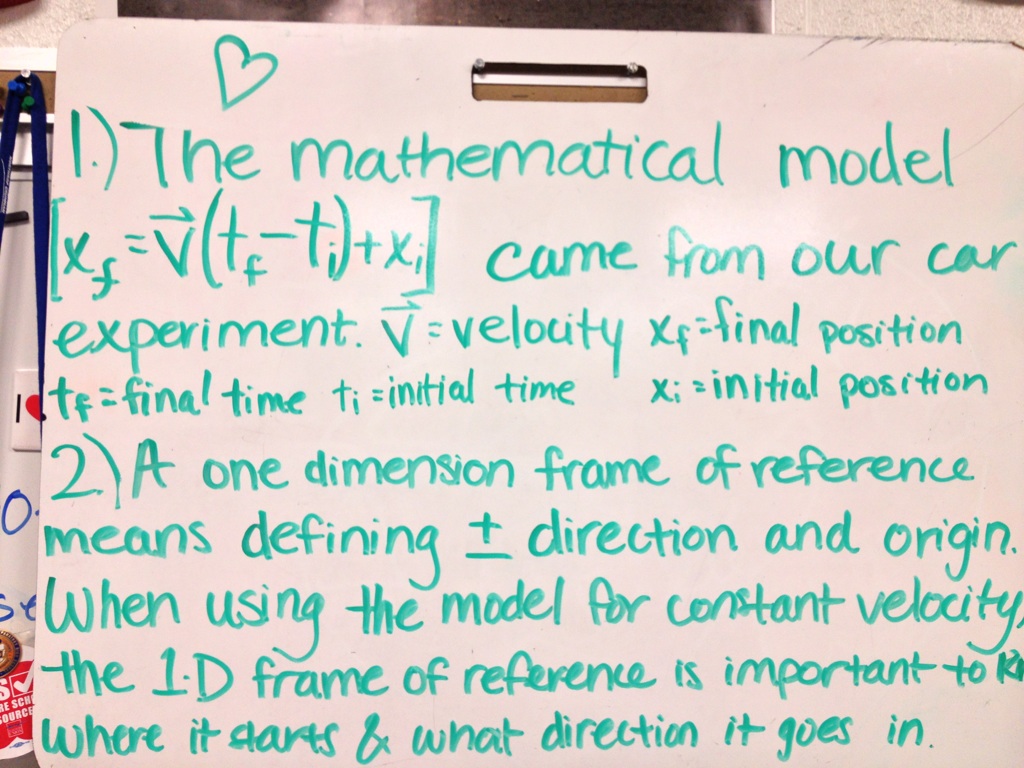 1.) The mathematical model
[x_f = v⃗(t_f - t_i) + x_i] came from our car
experiment. v⃗ = velocity x_f = final position
t_f = final time t_i = initial time x_i = initial position
2.) A one dimension frame of reference
means defining ± direction and origin.
When using the model for constant velocity,
the 1-D frame of reference is important to
where it starts & what direction it goes in.
I